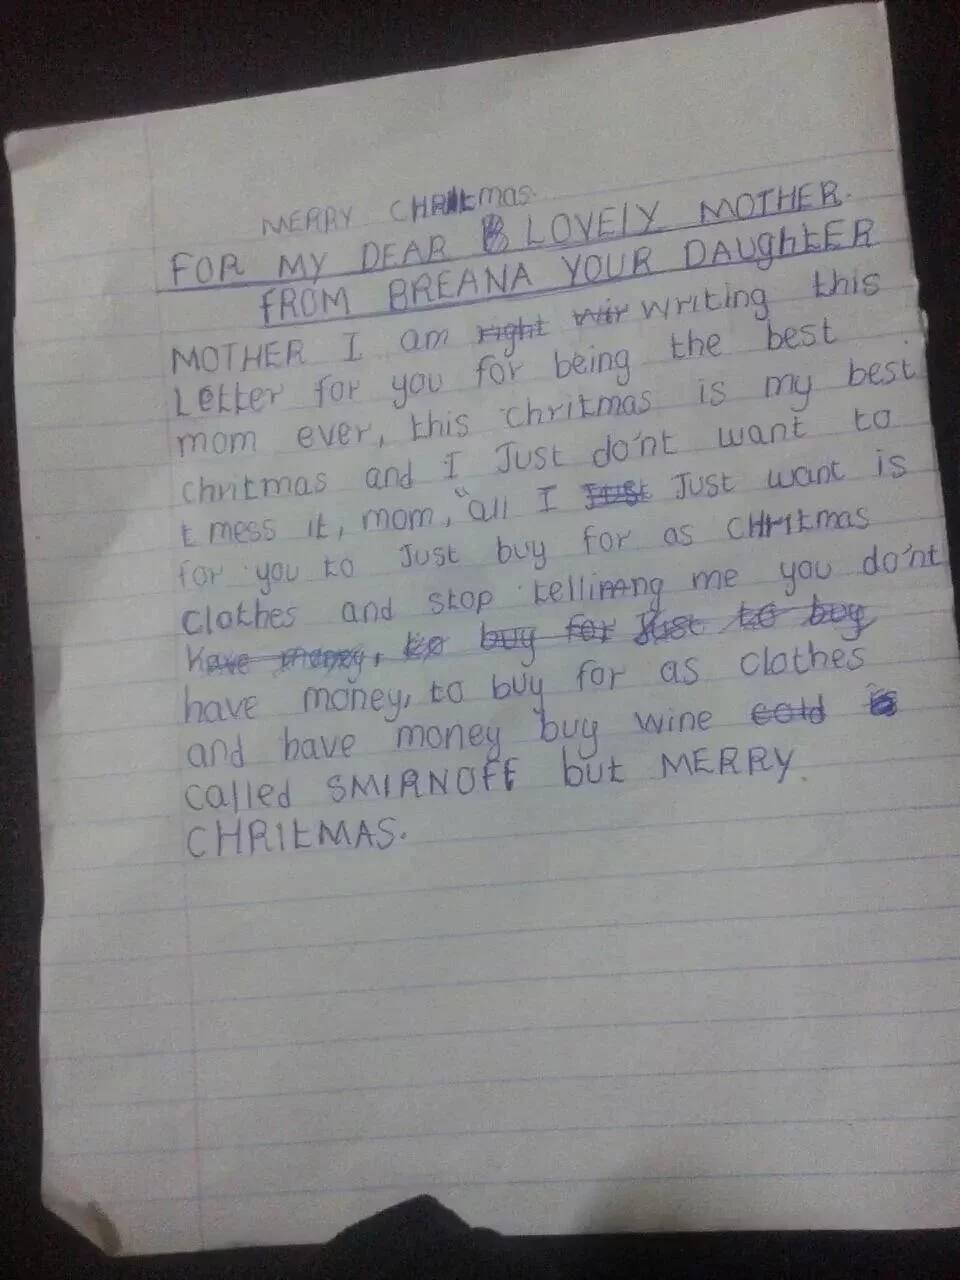 MERRY CHRItmas.
FOR MY DEAR LOVELY MOTHER.
FROM BREANA YOUR DAUGHTER
MOTHER I am right writing this
Letter for you for being the best
mom ever, this christmas is my best
chritmas and I Just do'nt want to
t mess it, mom, "all I Just Just want is
for you to Just buy for as CHritmas
clothes and stop telling me you do'nt
have money, to buy for Just to buy
have money, to buy for as clothes
and have money buy wine cold is
called SMIRNOFF but MERRY
CHRITMAS.